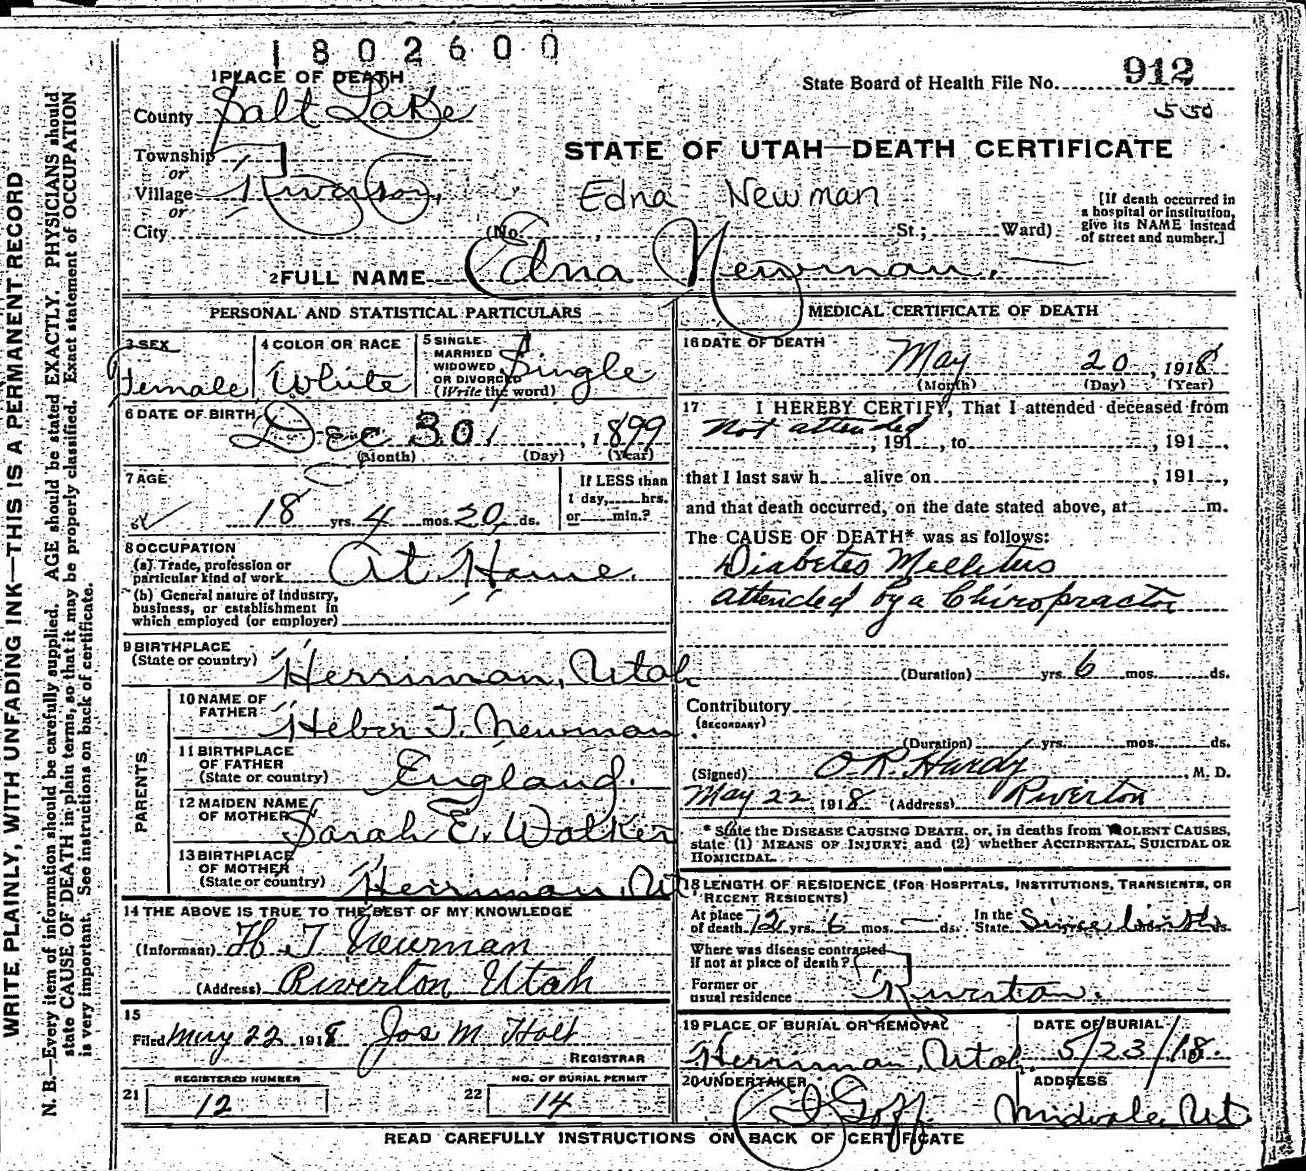 1802600
1 PLACE OF DEATH
State Board of Health File No. 912
550
County Salt Lake
STATE OF UTAH—DEATH CERTIFICATE
Township
or
Village Riverton,
or
Edna Newman
[If death occurred in
a hospital or institution,
give its NAME instead
of street and number.]
City (No. , St.; Ward)
2 FULL NAME Edna Newman.
PERSONAL AND STATISTICAL PARTICULARS
3 SEX
Female
4 COLOR OR RACE
White
5 SINGLE
MARRIED
WIDOWED
OR DIVORCED
(Write the word)
Single
6 DATE OF BIRTH
Dec 30, , 1899
(Month) (Day) (Year)
7 AGE
18 yrs. 4 mos. 20 ds.
If LESS than
1 day, hrs.
or min.?
8 OCCUPATION
(a) Trade, profession or
particular kind of work At Home.
(b) General nature of industry,
business, or establishment in
which employed (or employer)
9 BIRTHPLACE
(State or country) Herriman, Utah
PARENTS
10 NAME OF
FATHER Heber T. Newman
11 BIRTHPLACE
OF FATHER
(State or country) England.
12 MAIDEN NAME
OF MOTHER Sarah E. Walker
13 BIRTHPLACE
OF MOTHER
(State or country) Herriman, Ut
14 THE ABOVE IS TRUE TO THE BEST OF MY KNOWLEDGE
(Informant) H T Newman
(Address) Riverton Utah
15
Filed May 22 1918 Jos M Holt
REGISTRAR
21 REGISTERED NUMBER
12
22 NO. OF BURIAL PERMIT
14
MEDICAL CERTIFICATE OF DEATH
16 DATE OF DEATH
May 20, 1918
(Month) (Day) (Year)
17 I HEREBY CERTIFY, That I attended deceased from
Not attended , 191 , to , 191 ,
that I last saw h alive on , 191 ,
and that death occurred, on the date stated above, at m.
The CAUSE OF DEATH* was as follows:
Diabetes Mellitus
attended by a Chiropractor
(Duration) yrs. 6 mos. ds.
Contributory
(SECONDARY)
(Duration) yrs. mos. ds.
(Signed) O. R. Hardy, M. D.
May 22, 1918 (Address) Riverton
* State the DISEASE CAUSING DEATH, or, in deaths from VIOLENT CAUSES,
state (1) MEANS OF INJURY; and (2) whether ACCIDENTAL, SUICIDAL OR
HOMICIDAL.
18 LENGTH OF RESIDENCE (FOR HOSPITALS, INSTITUTIONS, TRANSIENTS, OR
RECENT RESIDENTS)
At place
of death 12 yrs. 6 mos. — ds.
In the
State Since birth ds.
Where was disease contracted
if not at place of death?
Former or
usual residence Riverton.
19 PLACE OF BURIAL OR REMOVAL
Herriman, Utah.
DATE OF BURIAL
5/23/18.
20 UNDERTAKER
Goff
ADDRESS
Midvale, Ut
READ CAREFULLY INSTRUCTIONS ON BACK OF CERTIFICATE
WRITE PLAINLY, WITH UNFADING INK—THIS IS A PERMANENT RECORD
N. B.—Every item of information should be carefully supplied. AGE should be stated EXACTLY. PHYSICIANS should
state CAUSE OF DEATH in plain terms, so that it may be properly classified. Exact statement of OCCUPATION
is very important. See instructions on back of certificate.